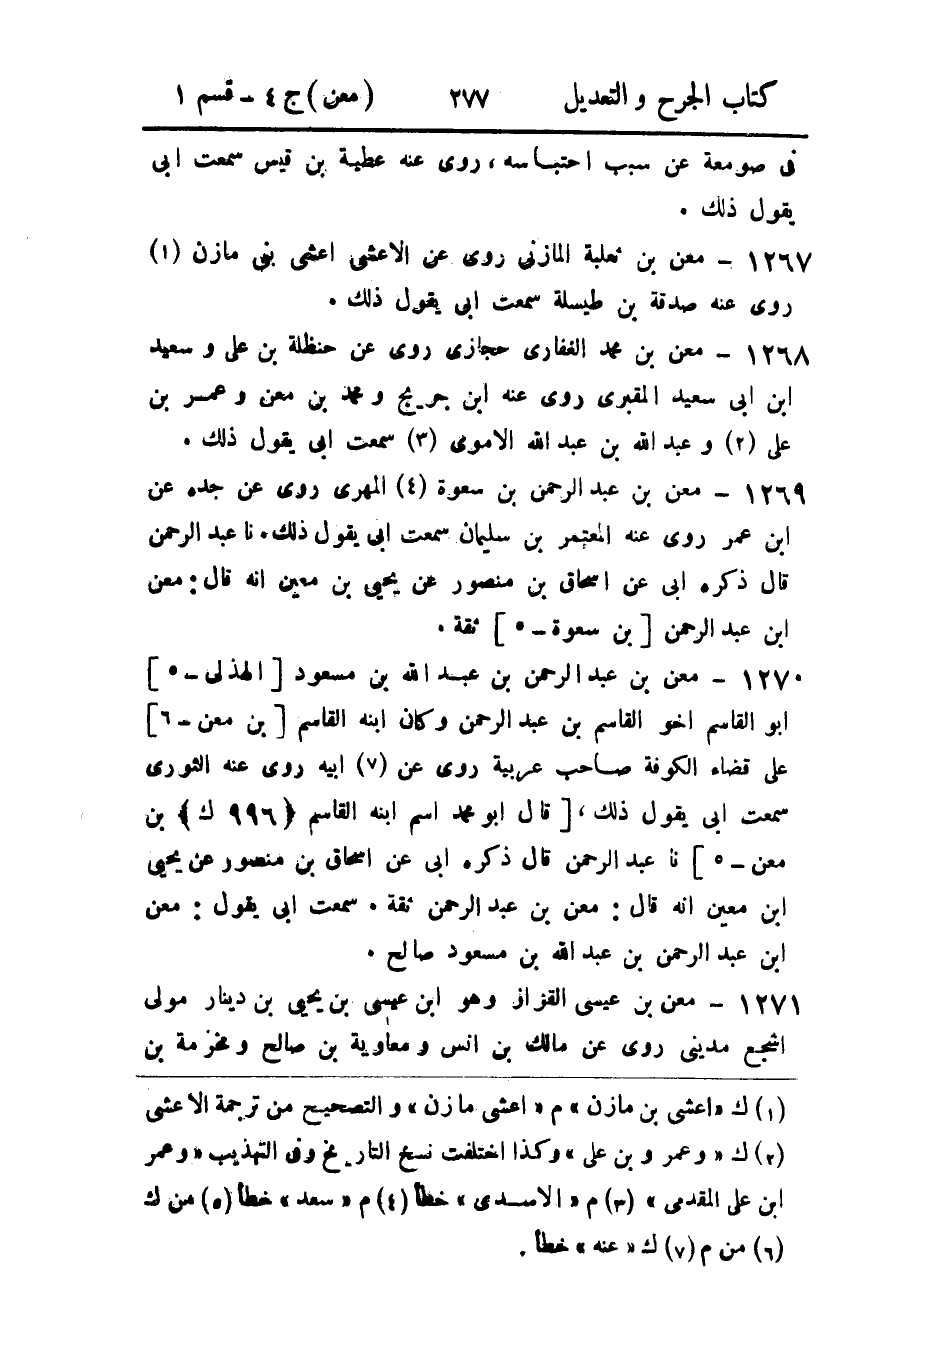 كتاب الجرح و التعديل ٢٧٧ (معن) ج ٤ - قسم ١
فى صومعة عن سبب احتباسه، روى عنه عطية بن قيس سمعت ابى
يقول ذلك .
١٢٦٧ - معن بن ثعلبة المازنى روى عن الاعشى اعشى بنى مازن (١)
روى عنه صدقة بن طيسلة سمعت ابى يقول ذلك .
١٢٦٨ - معن بن محمد الغفارى حجازى روى عن حنظلة بن على و سعيد
ابن ابى سعيد المقبرى روى عنه ابن جريج و محمد بن معن و عمر بن
على (٢) و عبد الله بن عبد الله الاموى (٣) سمعت ابى يقول ذلك .
١٢٦٩ - معن بن عبد الرحمن بن سعوة (٤) المهرى روى عن جده عن
ابن عمر روى عنه المعتمر بن سليمان سمعت ابى يقول ذلك. نا عبد الرحمن
قال ذكره ابى عن اسحاق بن منصور عن يحيى بن معين انه قال: معن
ابن عبد الرحمن [ بن سعوة - ٥ ] ثقة .
١٢٧٠ - معن بن عبد الرحمن بن عبد الله بن مسعود [ الهذلى - ٥ ]
ابو القاسم اخو القاسم بن عبد الرحمن وكان ابنه القاسم [ بن معن - ٦ ]
على قضاء الكوفة صاحب عربية روى عن (٧) ابيه روى عنه الثورى
سمعت ابى يقول ذلك، [ قال ابو محمد اسم ابنه القاسم (٩٩٦ ك) بن
معن - ٥ ] نا عبد الرحمن قال ذكره ابى عن اسحاق بن منصور عن يحيى
ابن معين انه قال : معن بن عبد الرحمن ثقة . سمعت ابى يقول : معن
ابن عبد الرحمن بن عبد الله بن مسعود صالح .
١٢٧١ - معن بن عيسى القزاز وهو ابن عيسى بن يحيى بن دينار مولى
اشجع مدينى روى عن مالك بن انس و معاوية بن صالح و مخرمة بن
(١) ك «اعشى بن مازن» م «اعشى مازن» و التصحيح من ترجمة الاعشى
(٢) ك «و عمر و بن على» وكذا اختلفت نسخ التاريخ وفى التهذيب «و عمر
ابن على المقدمى» (٣) م «الاسدى» خطأ (٤) م «سعد» خطأ (٥) من ك
(٦) من م (٧) ك «عنه» خطأ .